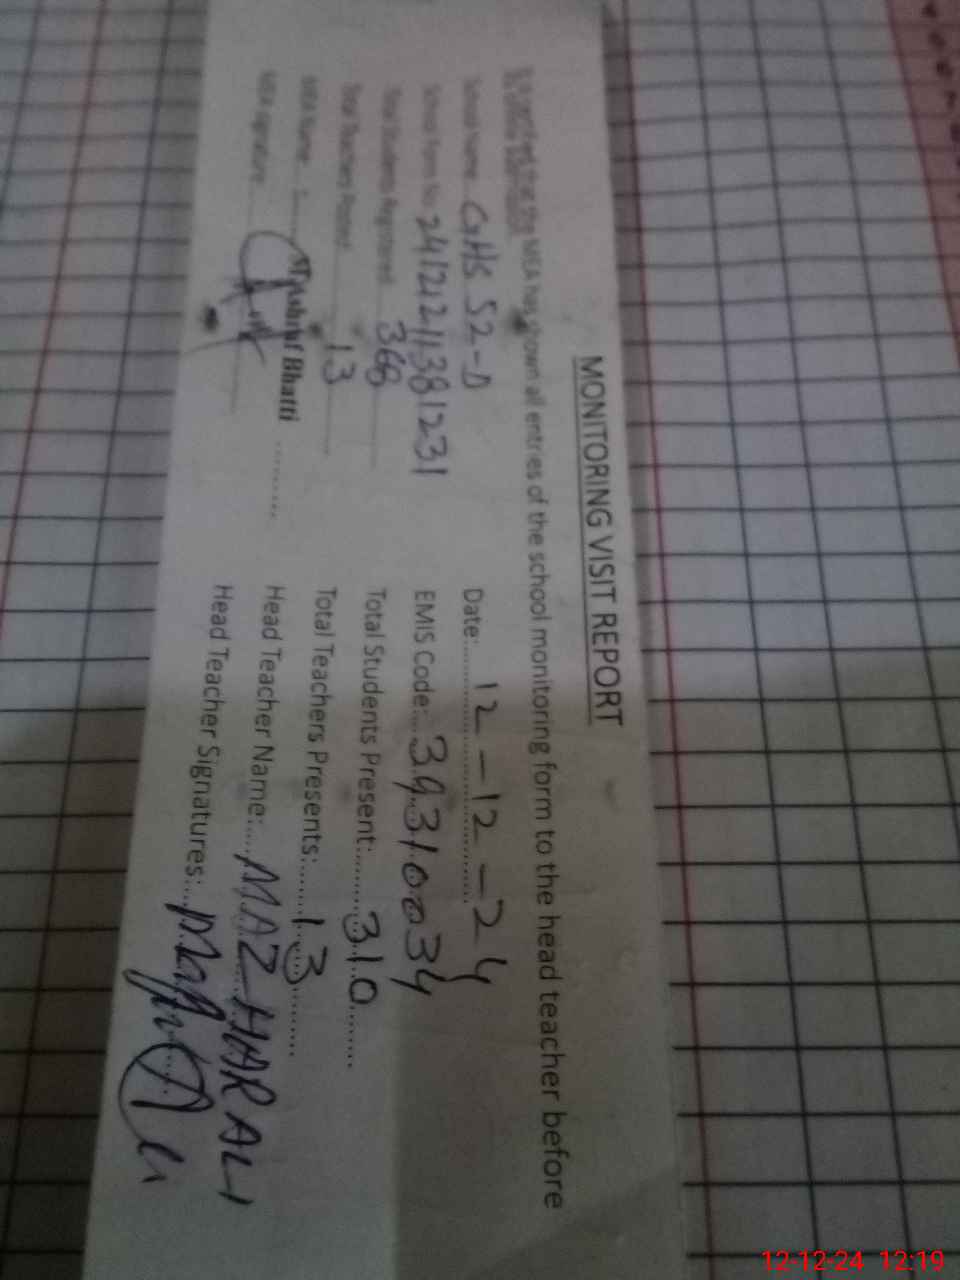 MONITORING VISIT REPORT
It is certified that the MEA has shown all entries of the school monitoring form to the head teacher before
School Name: GHS 52-D Date: 12-12-24
School Form No 24121211381231 EMIS Code: 39310034
Total Students Registered 366 Total Students Present: 310
Total Teachers Posted 13 Total Teachers Presents: 13
MEA Name Bhatti Head Teacher Name: MAZHAR ALI
MEA signature Head Teacher Signatures:
12-12-24 12:19